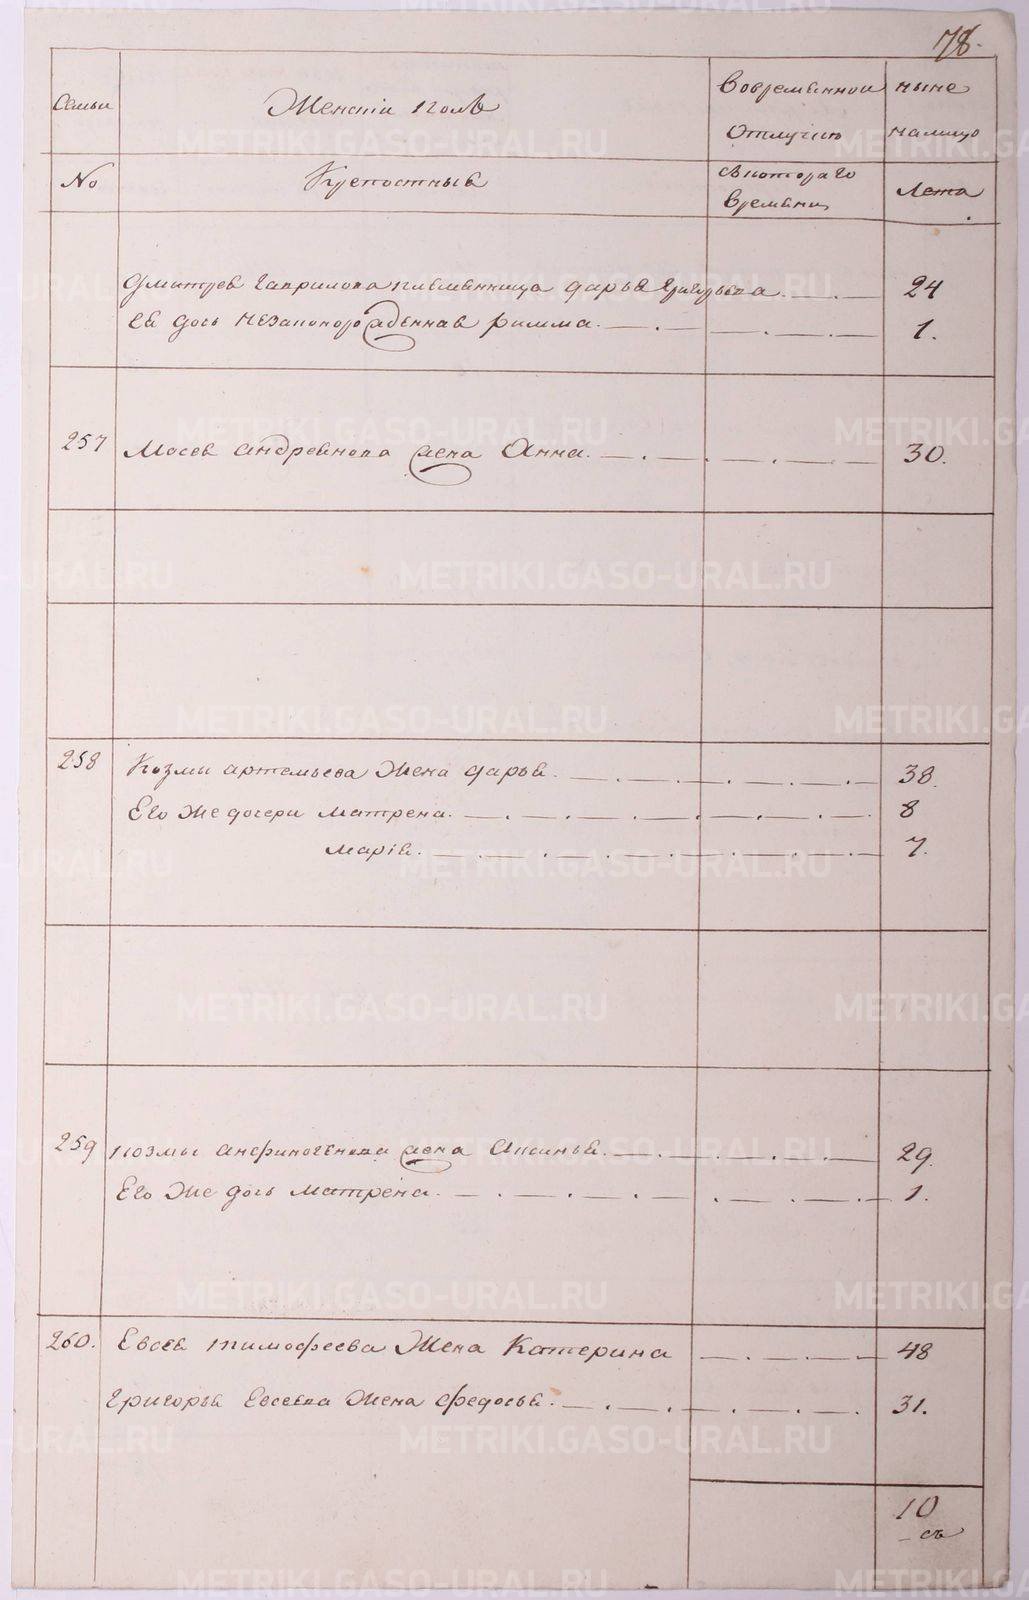 78.
Семьи
Женскiй полъ
Вовременной
Отлучке
ныне
налицо
No
Крепостныя
Съкотораго
времяни
Лета
Дмитрея Гаврилова племянница дарья Григорьева. 24
Ея дочь незаконорожденная римма. 1.
257 Мосея андреянова жена Анна. 30.
258 Козмы артемьева Жена дарья. 38.
Его Же дочери матрена. 8
марiя. 7.
259 козмы анфиногенова жена Аксинья. 29.
Его Же дочь матрена. 1.
260. Евсея тимофеева Жена Катерина 48
Григорья Евсеева Жена федосья. 31.
10
METRIKI.GASO-URAL.RU